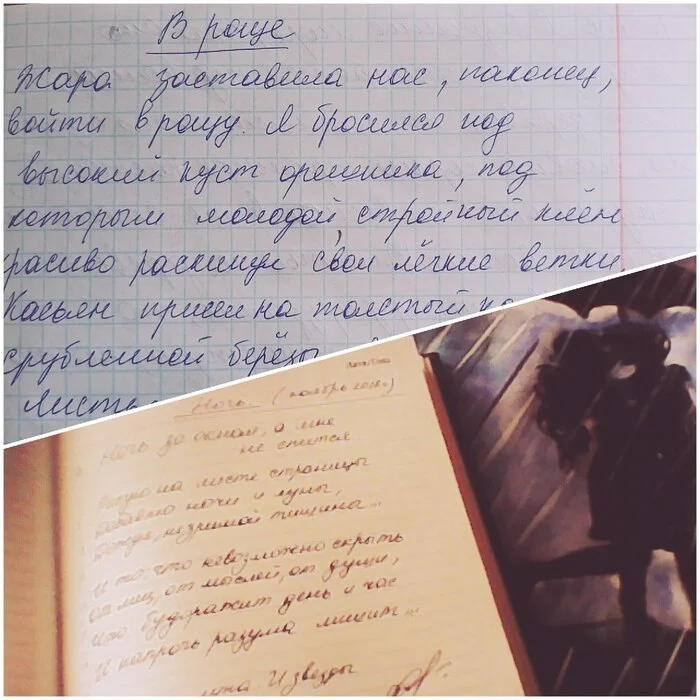 В роще
Жара заставила нас, наконец,
войти в рощу. Я бросился под
высокий куст орешника, под
которым молодой, стройный клён
красиво раскинул свои лёгкие ветки.
Касьян присел на толстый
срубленной берёзы
Листья
Ночь. (ноябрь
Ночь за окном, а мне
не спится
на листе страницы
ночи и луны,
незримой тишины...
И то, что невозможно скрыть
от лиц, от мыслей, от души,
Что будоражит день и час
И напрочь разума лишит...
И звезды